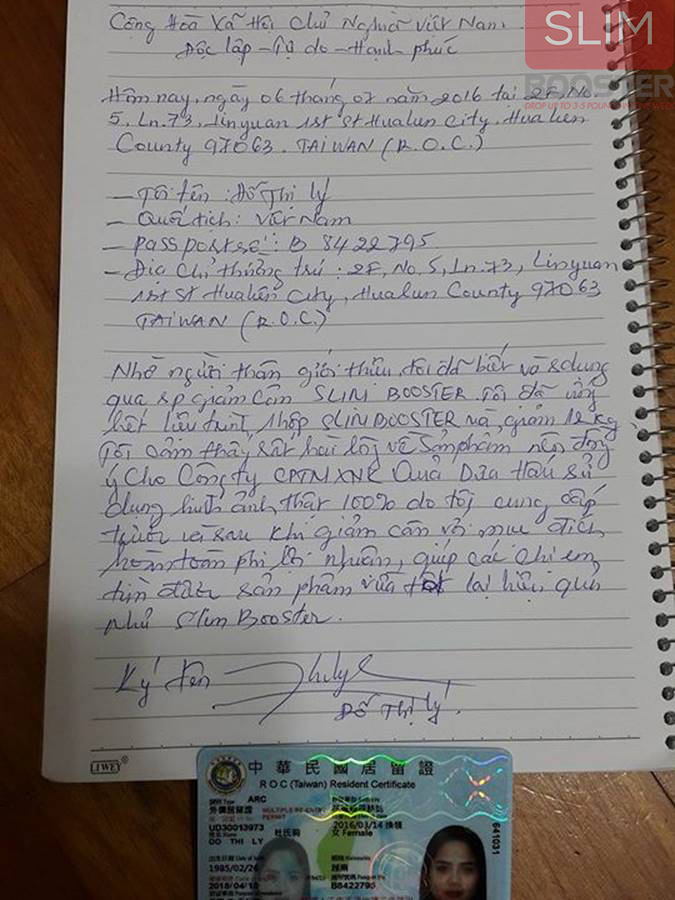 SLIM
BOOSTER
Cộng Hòa Xã Hội Chủ Nghĩa Việt Nam
Độc lập - Tự do - Hạnh phúc
Hôm nay, ngày 06 tháng 07 năm 2016 tại 2F, No.
5, Ln.73, Linyuan 1st St Hualien City, Hualien
County 97063. TAIWAN (R.O.C.)
- Tôi tên : Đỗ Thị Lý
- Quốc tịch : Việt Nam
- passport số : B 8422795
- Địa chỉ thường trú : 2F, No. 5, Ln.73, Linyuan
1st St Hualien City, Hualien County 97063
TAIWAN (R.O.C.)
Nhờ người thân giới thiệu, tôi đã biết và sử dụng
qua sp giảm cân SLIM BOOSTER. Tôi đã uống
hết liệu trình 1 hộp SLIM BOOSTER và giảm 12 kg
Tôi cảm thấy rất hài lòng về sản phẩm nên đồng
ý cho Công ty CPTMXNK Quả Dưa Hấu sử
dụng hình ảnh thật 100% do tôi cung cấp
trước và sau khi giảm cân với mục đích
hoàn toàn phi lợi nhuận, giúp các chị em
tìm được sản phẩm vừa tốt lại hiệu quả
như Slim Booster.
Ký tên
Đỗ Thị Lý.
LIWEY
中華民國居留證
ROC (Taiwan) Resident Certificate
ARC
外僑居留證 MULTIPLE RE-ENTRY PERMIT
2016/03/14 換領
UD30013973
DO THI LY
女 Female
1985/02/26
越南
2018/04/10
B8422795
641031